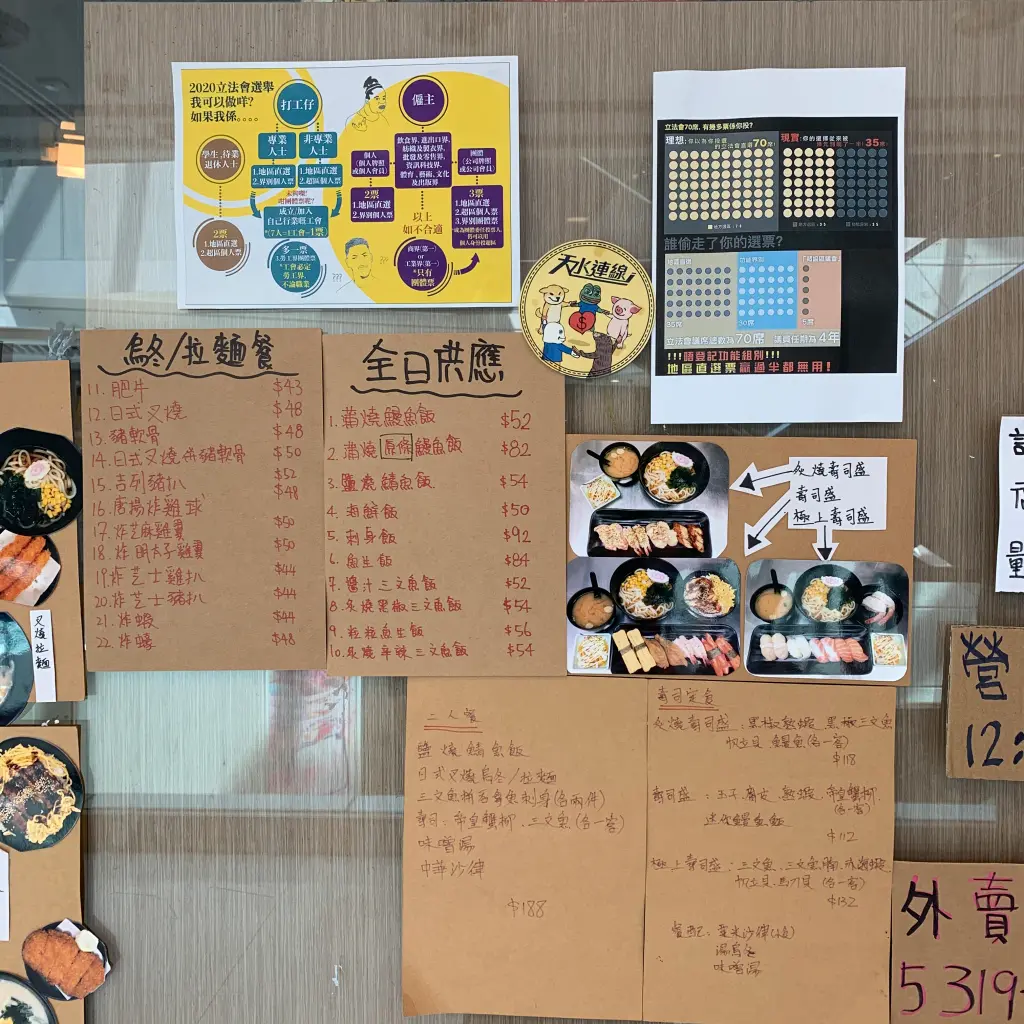 2020立法會選舉
我可以做咩?
如果我係....
打工仔
專業
人士
非專業
人士
學生、待業
退休人士
1.地區直選
2.界別個人票
1.地區直選
2.超區個人票
成立/加入
自己行業嘅工會
*7人=1工會=1票
2票
1.地區直選
2.超區個人票
多一票
3.勞工界團體票
*工會必定
勞工界,
不論職業
僱主
個人
(個人牌照
或個人會員)
飲食界, 進出口界,
紡織及製衣界,
批發及零售界,
資訊科技界,
體育、藝術、文化
及出版界
團體
(公司牌照
或公司會員)
2票
1.地區直選
2.界別個人票
以上
如不合適
3票
1.地區直選
2.超區個人票
3.界別團體票
商界(第一)
or
工業界(第一)
*只有
團體票
天水連線
立法會70席, 有幾多票係你投?
理想:你以為你投選
的立法會直選70席!
現實:你的選擇從來被
35席!
誰偷走了你的選票?
地區直選
功能界別
「超級區議會」
35席
30席
5席
立法會議席總數為70席 議員任期為4年
!!!唔登記功能組別!!!
地區直選票贏過半都無用!
烏冬/拉麵餐
11. 肥牛 $43
12. 日式叉燒 $48
13. 豬軟骨 $48
14. 日式叉燒併豬軟骨 $50
15. 吉列豬扒 $52
16. 唐揚炸雞球 $48
17. 炸芝麻雞翼 $50
18. 炸明太子雞翼 $50
19. 炸芝士雞扒 $44
20. 炸芝士豬扒 $44
21. 炸蝦 $44
22. 炸蠔 $48
全日供應
1. 蒲燒鰻魚飯 $52
2. 蒲燒原條鰻魚飯 $82
3. 鹽燒鯖魚飯 $54
4. 海鮮飯 $50
5. 刺身飯 $92
6. 魚生飯 $84
7. 醬汁三文魚飯 $52
8. 炙燒黑椒三文魚飯 $54
9. 粒粒魚生飯 $56
10. 炙燒辛辣三文魚飯 $54
炙燒壽司盛
壽司盛
極上壽司盛
叉燒拉麵
二人餐
鹽燒鯖魚飯
日式叉燒烏冬/拉麵
壽司:帝皇蟹柳、三文魚(各一客)
味噌湯
中華沙律
$188
壽司定食
炙燒壽司盛:黑椒熟蝦 黑椒三文魚
帆立貝 鰻魚(各一客)
$118
壽司盛:玉子 腐皮 熟蝦 帝皇蟹柳
(各一客)
迷你鰻魚飯
$112
極上壽司盛:三文魚、三文魚腩、赤蝦
帆立貝 (各一客)
$132
餐配:粟米沙律(細)
湯烏冬
味噌湯
營
12:
外賣
5319-
量